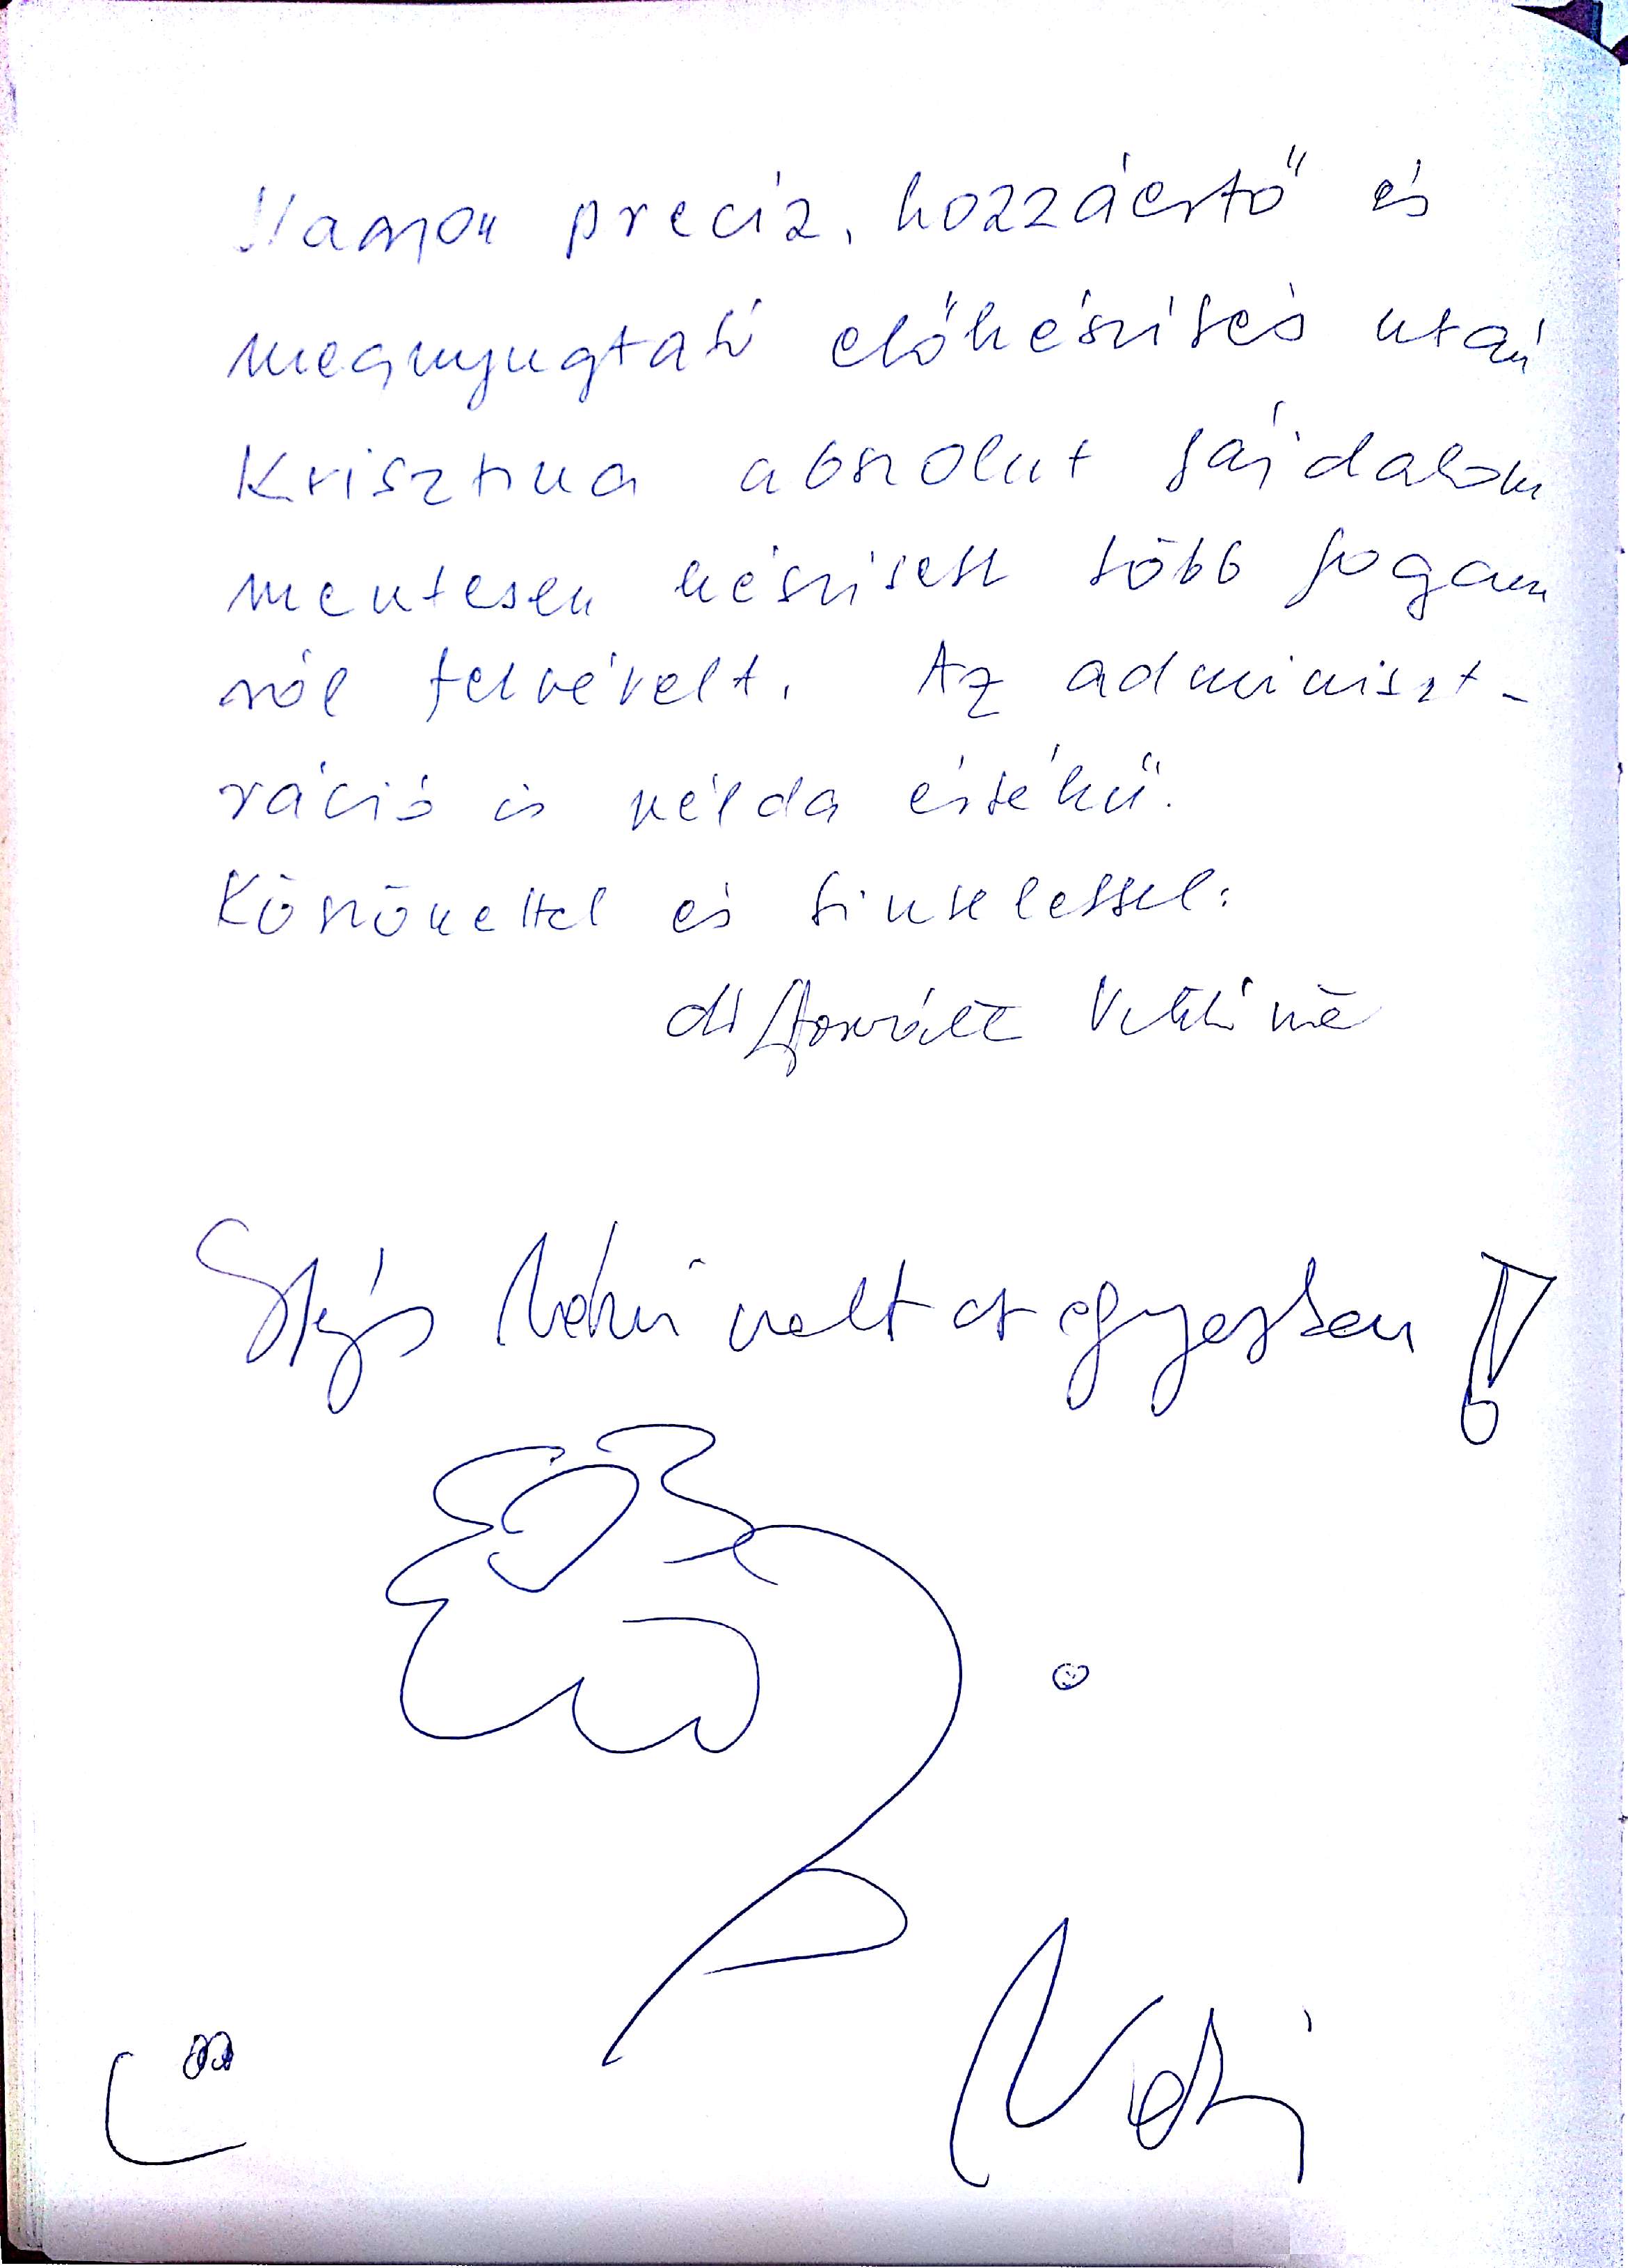 Nagyon precíz, hozzáértő és
megnyugtató előkészítés után
Krisztina abszolut fájdalom
mentesen készített több fogam
ról felvételt. Az adminiszt-
ráció is példa értékű.
Köszönettel és tisztelettel:
dr Horváth
volt az egyesben!